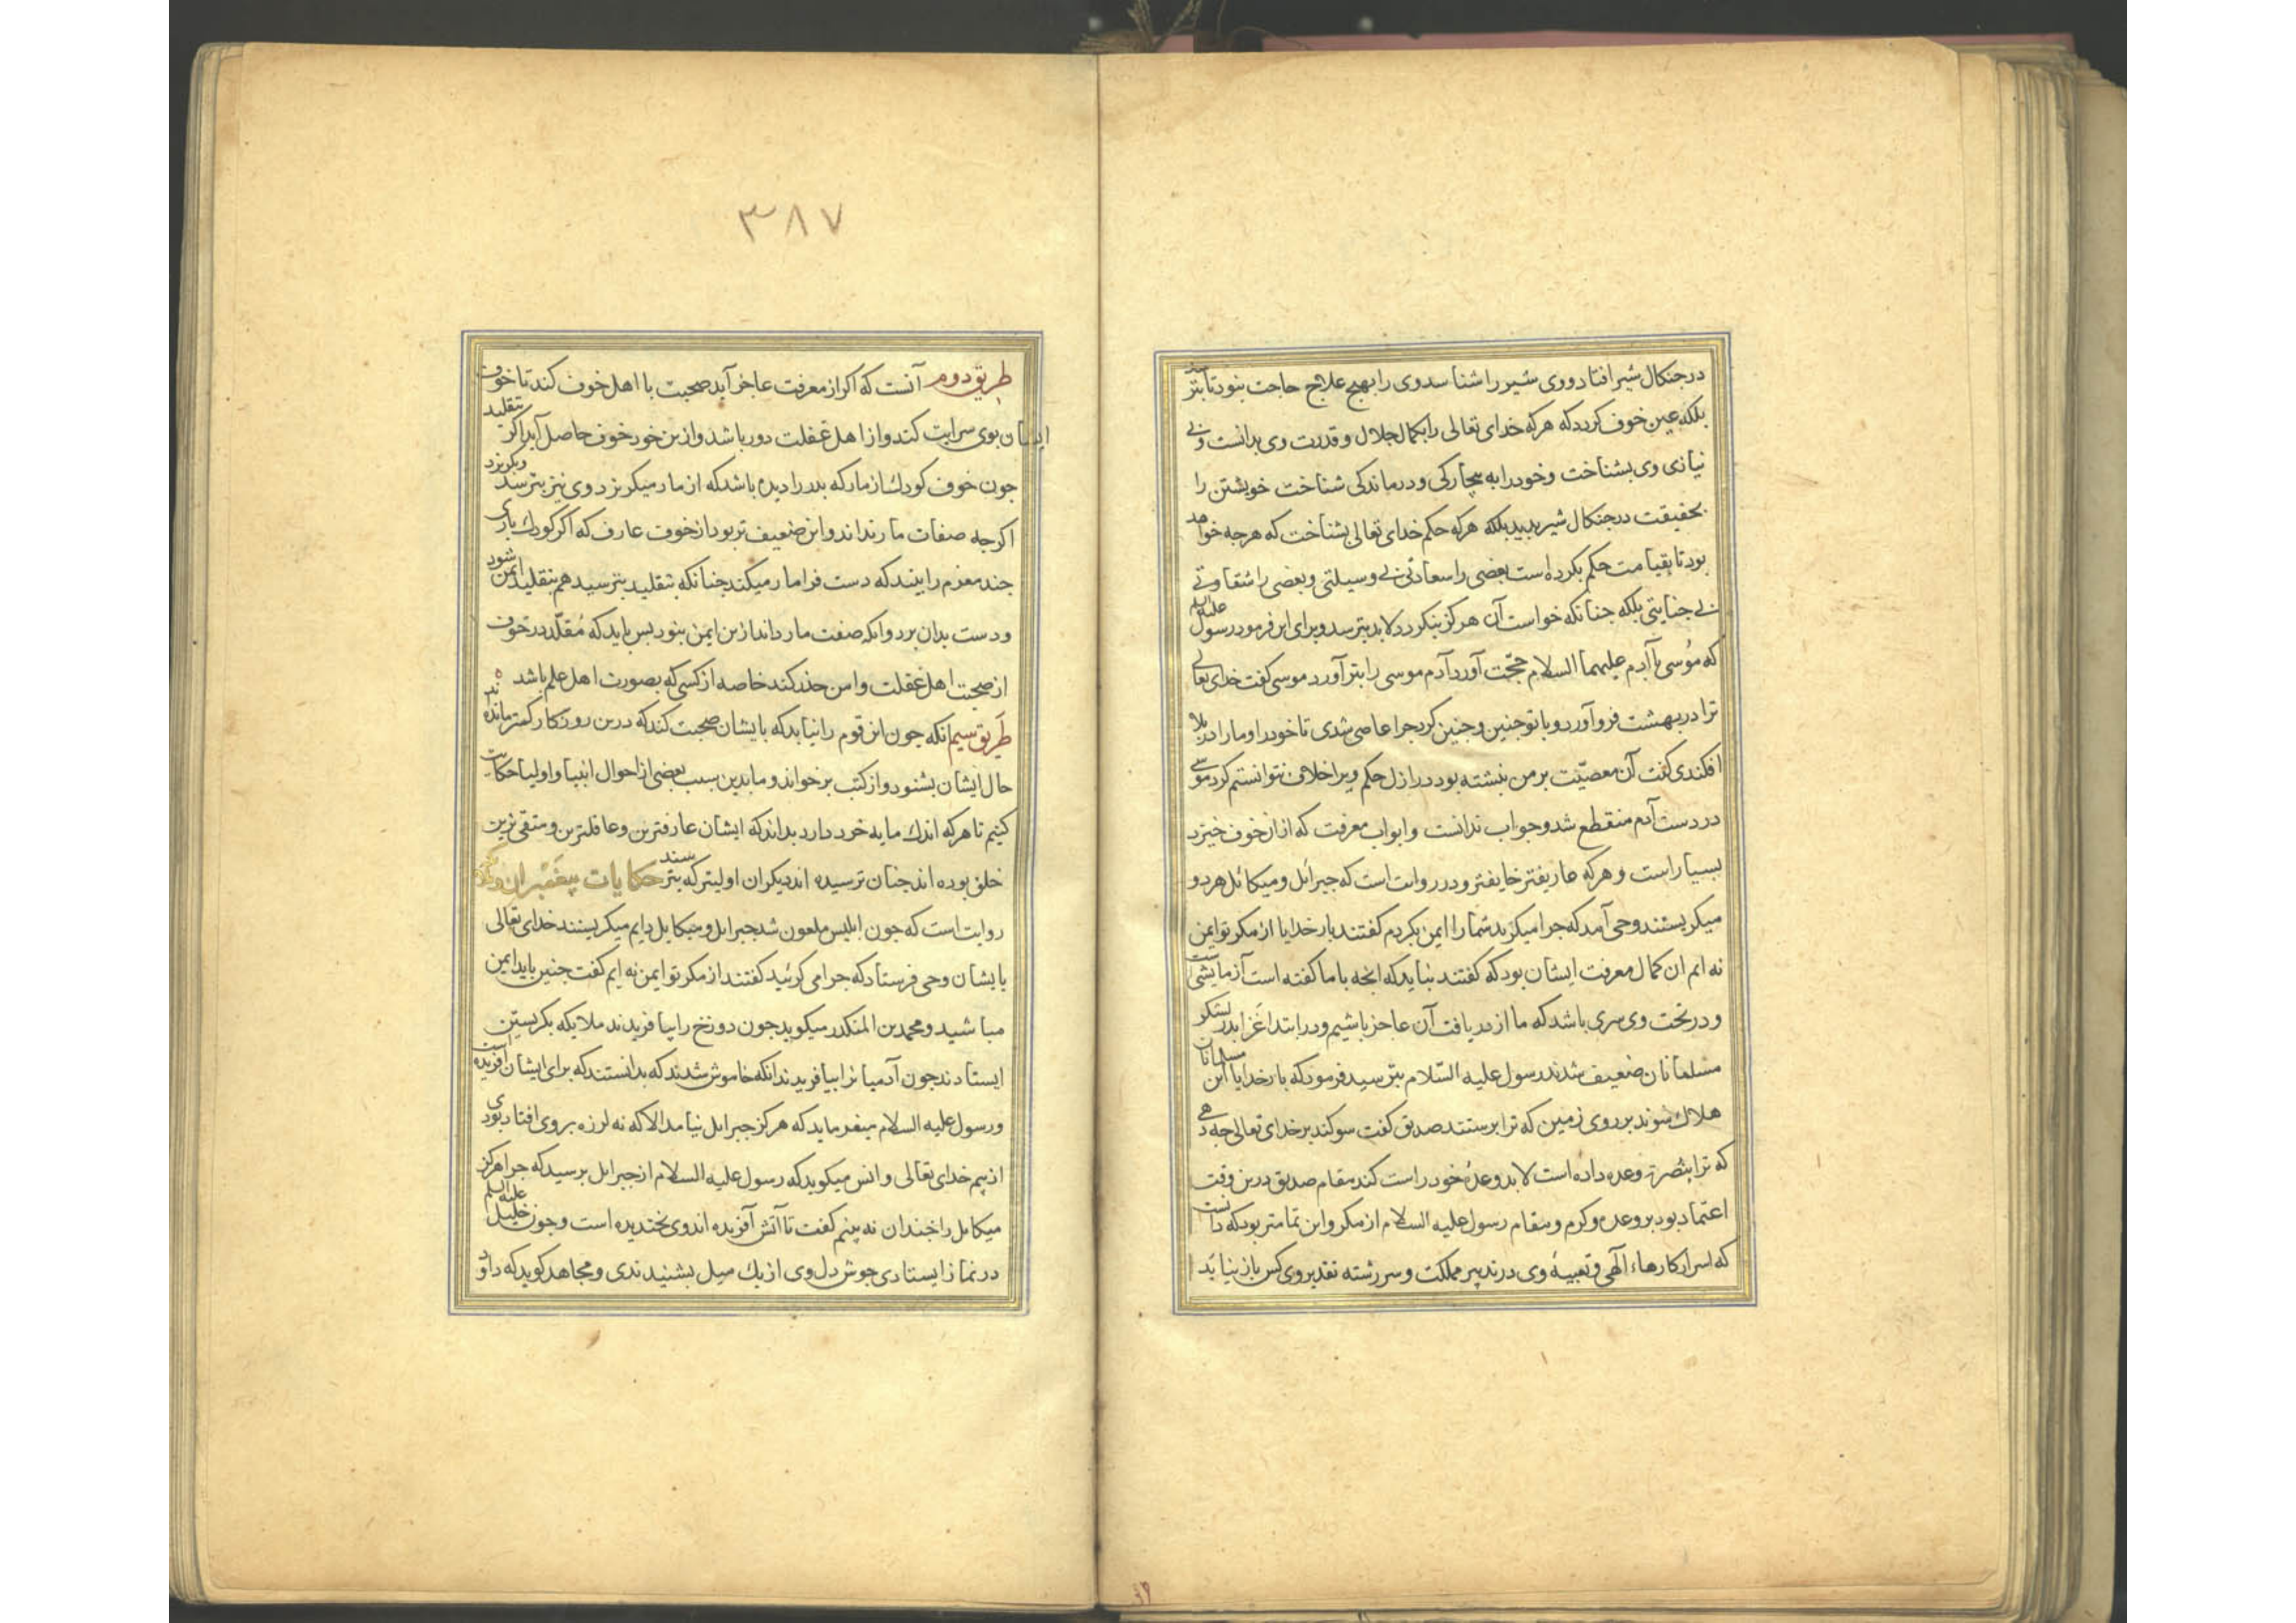 در جنکال شیر افتاد و وی شیر را شناسد وی را بهیچ علاج حاجت نبود تا بترسد
بلکه عین خوف کردد که هرکه خدای تعالی را بکمال جلال و قدرت وی بدانست و بی
نیازی وی بشناخت و خود را به بیچارکی و درماندکی شناخت خویشتن را
بحقیقت در جنکال شیر بدید بلکه هرکه حکم خدای تعالی بشناخت که هرجه خواهد
بود تا بقیامت حکم بکرده است بعضی را سعادتی بی وسیلتی و بعضی را شقاوتی
بی جنایتی بلکه جنانکه خواست آن هرکز بنکردد لابد بترسد و برای این فرمود رسول علیه السلم
که موسی با آدم علیهما السلام حجّت آورد آدم موسی را بتر آورد موسی کفت خدای تعالی
ترا در بهشت فرو آورد و با تو جنین و جنین کرد جرا عاصی شدی تا خود را و ما را در بلا
افکندی کفت آن معصیّت بر من نبشته بود در ازل حکم ویرا خلاف نتوانستم کرد موسی
در دست آدم منقطع شد و جواب ندانست و ابواب معرفت که از ان خوف خیزد
بسیار است و هرکه عارفتر خایفتر و در روایت است که جبرائل و میکائل هر دو
میکریستند وحی آمد که جرا میکریید شما را ایمن بکردم کفتند بار خدایا از مکر تو ایمن
نه ایم ان کمال معرفت ایشان بود که کفتند نباید که انجه با ما کفته است آزمایشی است
و در تحت وی سری باشد که ما از دریافت آن عاجز باشیم و در ابتدا غزا بدر لشکر
مسلمانان ضعیف شدند رسول علیه السّلام بترسید فرمود که بار خدایا این مسلمانان
هلاک شوند بر روی زمین که ترا پرستند صدیق کفت سوکند بر خدای تعالی جه دهی
که ترا بنصرت وعده داده است لابد وعدۀ خود راست کند مقام صدیق درین وقت
اعتماد بود بر وعده و کرم و مقام رسول علیه السلام از مکر و این تمامتر بود که دانست
که اسرار کارهاء الٓهی و تعبیۀ وی در تدبیر مملکت و سر رشته تقدیر وی کس باز نیابد
۳۸۷
طریق دوم آنست که اکر از معرفت عاجز آید صحبت با اهل خوف کند تا خوف
ایشان بوی سرایت کند و از اهل غفلت دور باشد و ازین خود خوف حاصل آید اکر بتقلید
جون خوف کودک از مار که بدر را دیده باشد که از مار میکریزد وی نیز بترسد و بکریزد
اکرجه صفات مار نداند و این ضعیف تر بود از خوف عارف که اکر کودک باری
جند معزم را بیند که دست فرا مار میکند جنانکه بتقلید بترسید هم بتقلید ایمن شود
و دست بدان برد و انکه صفت مار داند ازین ایمن نبود بس باید که مُقلّد در خوف
از صحبت اهل غفلت و امن حذر کند خاصه از کسی که بصورت اهل علم باشد
طریق سیم انکه جون این قوم را نیابد که با ایشان صحبت کند که درین روزکار کمتر مانده اند
حال ایشان بشنود و از کتب بر خواند و ما بدین سبب بعضی از احوال انبیا و اولیا حکایت
کنیم تا هرکه اندک مایه خرد دارد بداند که ایشان عارفترین و عاقلترین و متقی ترین
خلق بوده اند جنان ترسیده اند دیکران اولیتر که بترسند حکایات پیغمبران و
روایت است که جون ابلیس ملعون شد جبرایل و میکایل دایم میکریستند خدای تعالی
بایشان وحی فرستاد که جرا می کریید کفتند از مکر تو ایمن نه ایم کفت جنین باید ایمن
مباشید و محمد بن المنکدر میکوید جون دوزخ را بیافریدند ملایکه بکریستن
ایستادند جون آدمیانرا بیافریدند انکه خاموش شدند که بدانستند که برای ایشان آفریده است
و رسول علیه السلام میفرماید که هرکز جبرایل نیامد الا که نه لرزه بر وی افتاد بودی
از بیم خدای تعالی و انس میکوید که رسول علیه السلام از جبرایل برسید که جرا هرکز
میکایل را خندان نه بینم کفت تا آتش آفریده اند وی نخندیده است و جون خلیل علیه السلم
در نماز ایستادی جوش دل وی از یک میل بشنیدندی و مجاهد کوید که داود